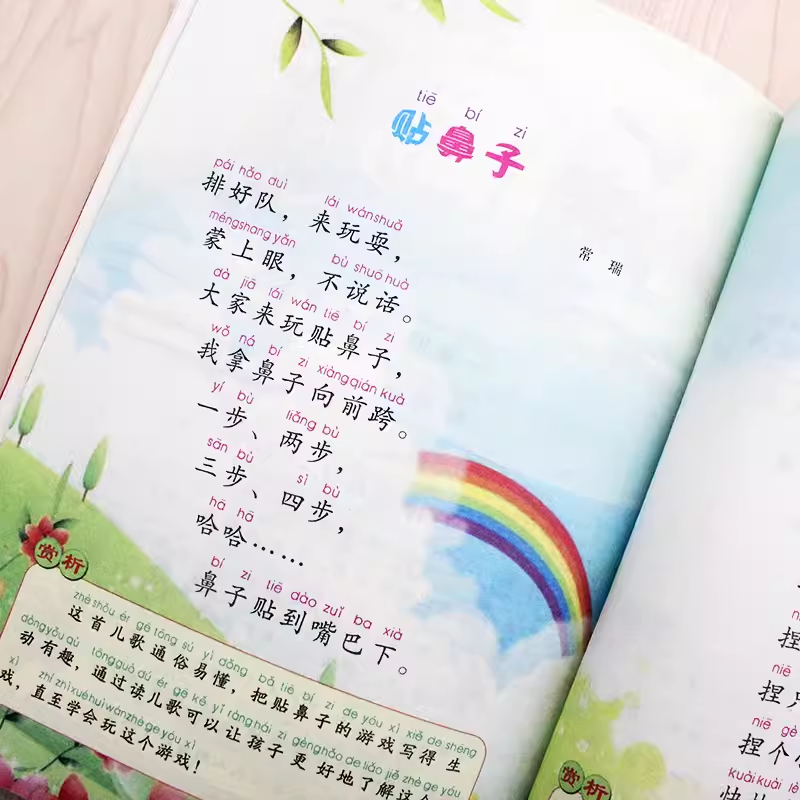 tiē bí zi
贴鼻子
常瑞
pái hǎo duì lái wán shuǎ
排好队，来玩耍，
méng shang yǎn bù shuō huà
蒙上眼，不说话。
dà jiā lái wán tiē bí zi
大家来玩贴鼻子，
wǒ ná bí zi xiàng qián kuà
我拿鼻子向前跨。
yí bù liǎng bù
一步、两步，
sān bù sì bù
三步、四步，
hā hā
哈哈……
bí zi tiē dào zuǐ ba xià
鼻子贴到嘴巴下。
赏析
zhè shǒu ér gē tōng sú yì dǒng bǎ tiē bí zi de yóu xì xiě de shēng
这首儿歌通俗易懂，把贴鼻子的游戏写得生
dòng yǒu qù tōng guò dú ér gē kě yǐ ràng hái zi gèng hǎo de liǎo jiě zhè ge yóu
动有趣，通过读儿歌可以让孩子更好地了解这个
xì zhí zhì xué huì wán zhè ge yóu xì
戏，直至学会玩这个游戏！
捏
niē
捏只
niē gè
捏个
kuài kuài
赏析